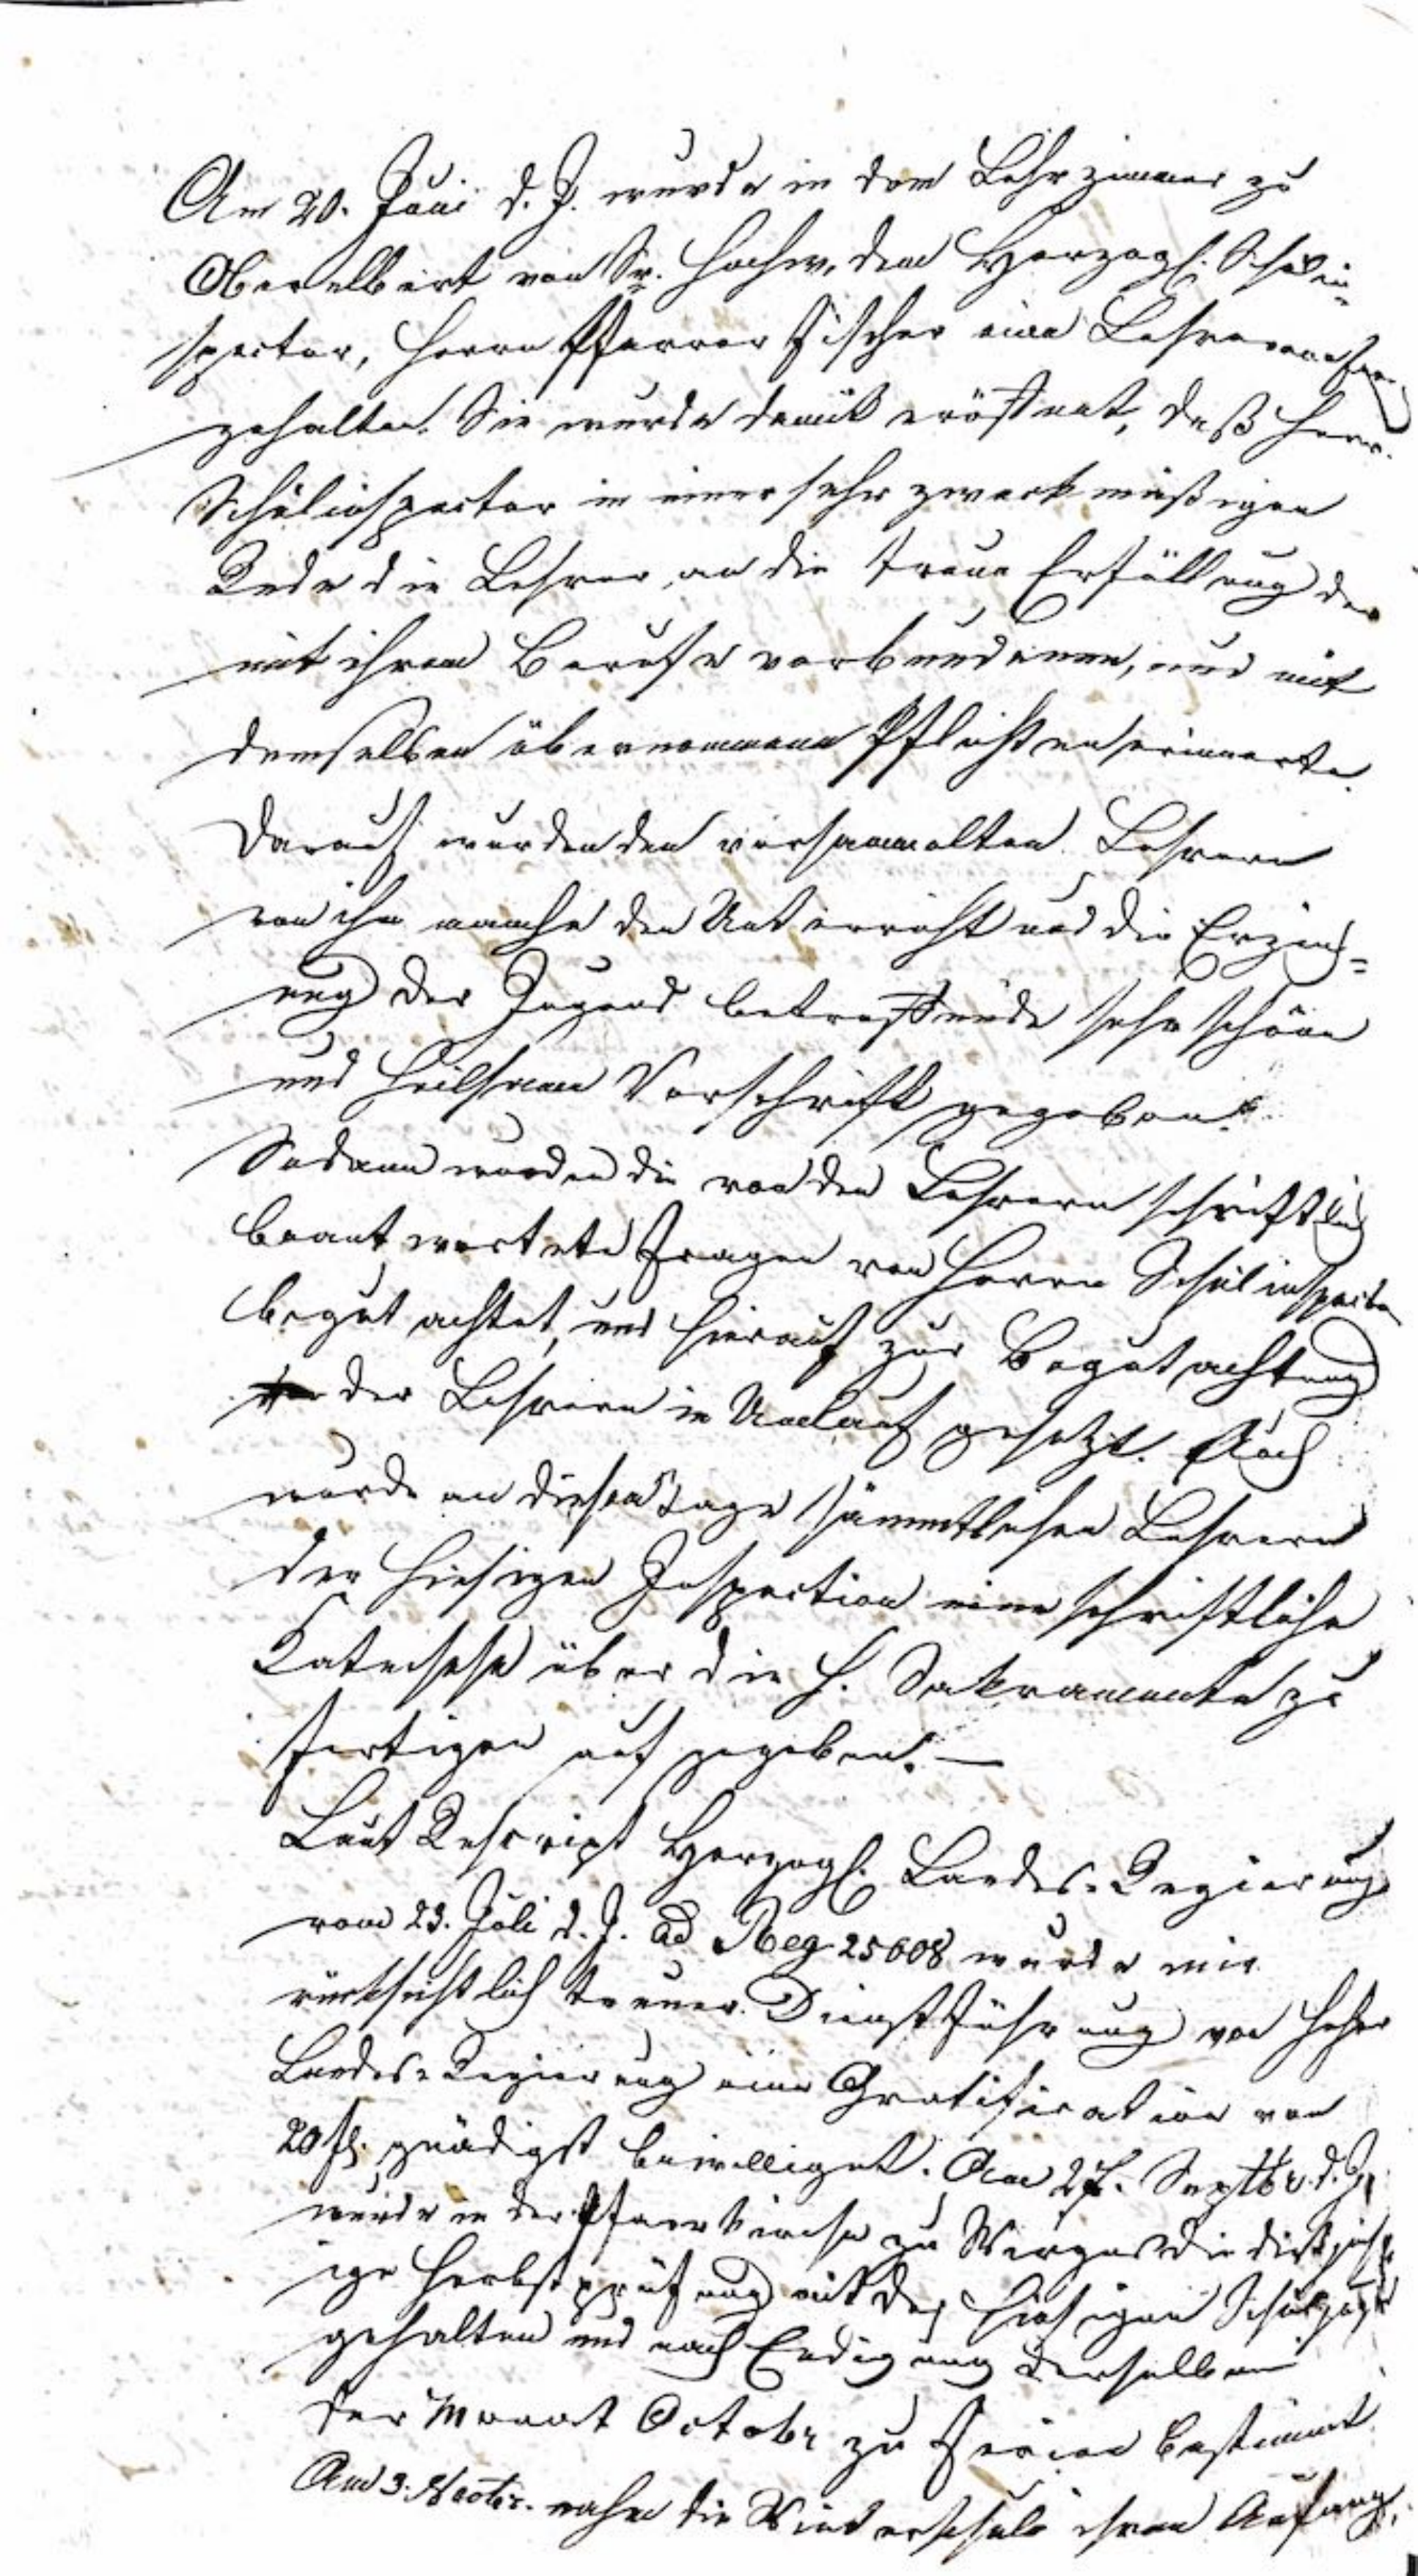 Am 20. Juni d. J. wurde in dem Lehrzimmer zu
Oberelbert von Sr. Hochw. dem Herzogl. Schulin-
spector, Herrn Pfarrer Fischer eine Lehrerconferenz
gehalten. Sie wurde damit eröffnet, daß Herr
Schulinspector in einer sehr zweckmäßigen
Rede die Lehrer an die treue Erfüllung der
mit ihrem Berufe verbundenen, und mit
demselben übernommenen Pflichten erinnerte.
Darauf wurden den versammelten Lehrern
von ihm manche den Unterricht und die Erzieh=
ung der Jugend betreffende sehr schöne
und heilsame Vorschrift gegeben.
Sodann wurden die von den Lehrern schriftlich
beantworteten Fragen von Herrn Schulinspector
begutachtet, und hierauf zur Begutachtung
der Lehrern in Umlauf gesetzt. Auch
wurde an diesem Tage sämmtlichen Lehrern
der hiesigen Inspection eine schriftliche
Katechese über die h. Sakramente zu
fertigen aufgegeben. —
Laut Rescript Herzogl. Landes-Regierung
vom 23. Juli d. J. ad Reg 25608 wurde mir
rücksichtlich treuer Dienstführung von hoher
Landes-Regierung eine Gratification von
20 fl. gnädigst bewilliget. Am 27. Septbr. d. J.
wurde in der Pfarrkirche zu Wirges die dießjähr
ige Herbstprüfung mit der hiesigen Schuljugend
gehalten und nach Endigung derselben
der Monat Octobr zu Ferien bestimmt.
Am 3. Novbr. nahm die Winterschule ihren Anfang.